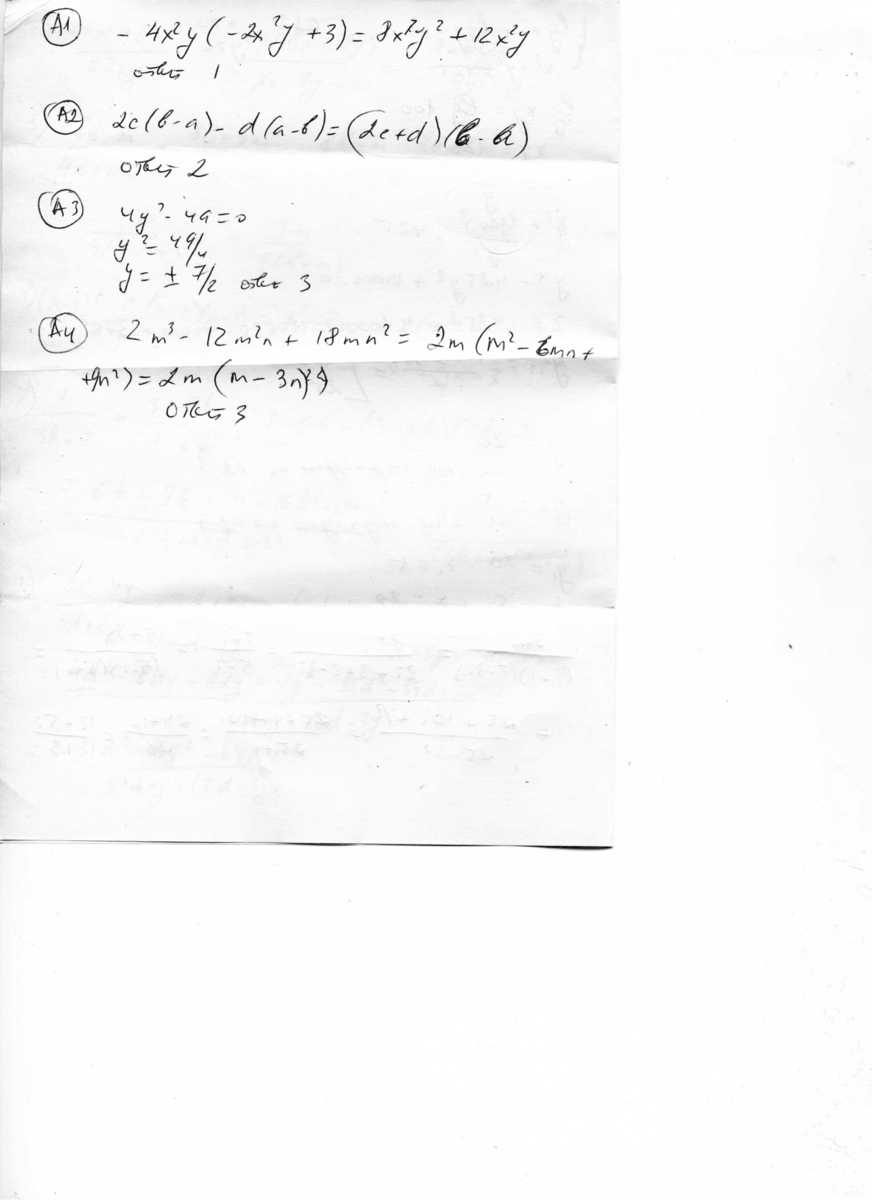 A1 - 4x²y (-2x²y + 3) = 8x²y² + 12x²y
ответ 1
A2 2c(b-a) - d(a-b) = (2c+d)(b-a)
ответ 2
A3 4y² - 49 = 0
y² = 49/4
y = ± 7/2 ответ 3
A4 2m³ - 12m²n + 18mn² = 2m (m² - 6mn +
+9n²) = 2m (m - 3n)²
ответ 3